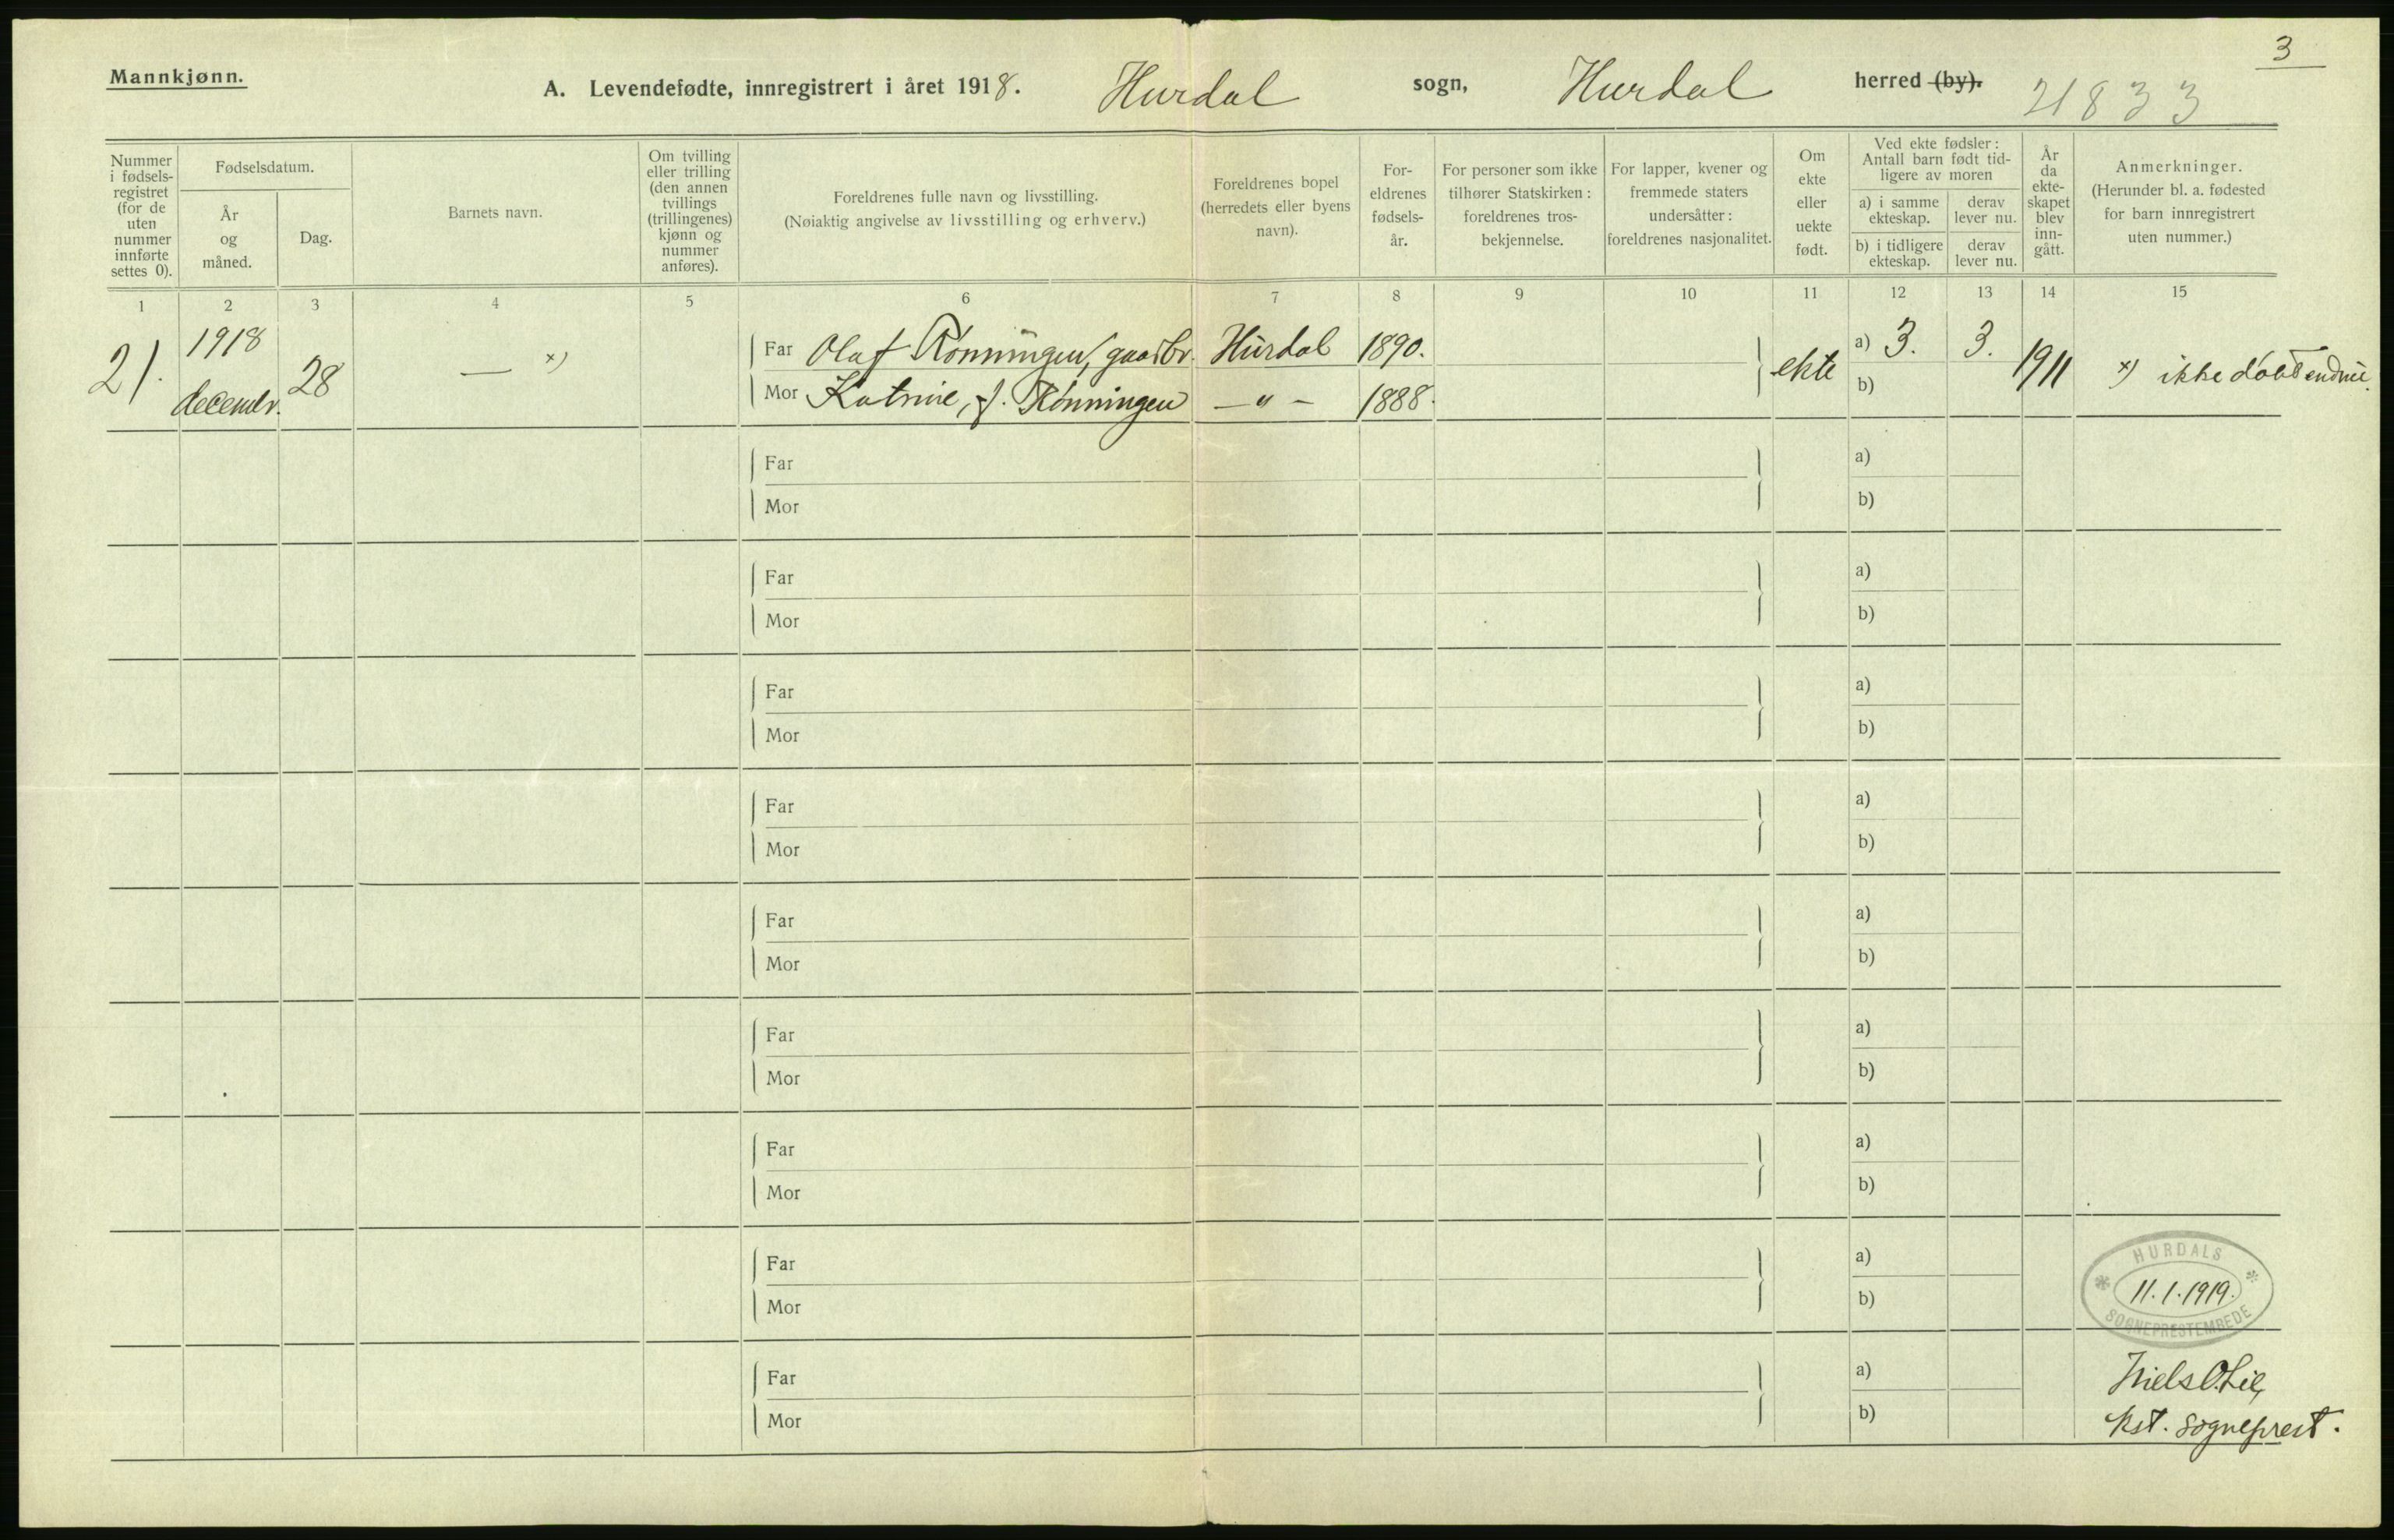 3
Mannkjønn.
A. Levendefødte, innregistrert i året 1918. Hurdal sogn, Hurdal herred (by). 21833
Nummer
i fødsels-
registret
(for de
uten
nummer
innførte
settes 0).
Fødselsdatum.
År
og
måned.
Dag.
Barnets navn.
Om tvilling
eller trilling
(den annen
tvillings
(trillingenes)
kjønn og
nummer
anføres).
Foreldrenes fulle navn og livsstilling.
(Nøiaktig angivelse av livsstilling og erhverv.)
Foreldrenes bopel
(herredets eller byens
navn).
For-
eldrenes
fødsels-
år.
For personer som ikke
tilhører Statskirken:
foreldrenes tros-
bekjennelse.
For lapper, kvener og
fremmede staters
undersåtter:
foreldrenes nasjonalitet.
Om
ekte
eller
uekte
født.
Ved ekte fødsler:
Antall barn født tid-
ligere av moren
a) i samme
ekteskap.
derav
lever nu.
b) i tidligere
ekteskap.
derav
lever nu.
År
da
ekte-
skapet
blev
inn-
gått.
Anmerkninger.
(Herunder bl. a. fødested
for barn innregistrert
uten nummer.)
1 2 3 4 5 6 7 8 9 10 11 12 13 14 15
21. 1918 decembr. 28 — x)
Far Olaf Rønningen, gaardbr. Hurdal 1890. ekte a) 3. 3. 1911 x) ikke døbt endnu.
Mor Katrine, f. Rønningen — " — 1888. b)
Far a)
Mor b)
Far a)
Mor b)
Far a)
Mor b)
Far a)
Mor b)
Far a)
Mor b)
Far a)
Mor b)
Far a)
Mor b)
Far a)
Mor b)
HURDALS
11.1.1919.
SOGNEPRESTEMBEDE
Far a)
Mor b)
Niels O. Lie,
kst. sogneprest.